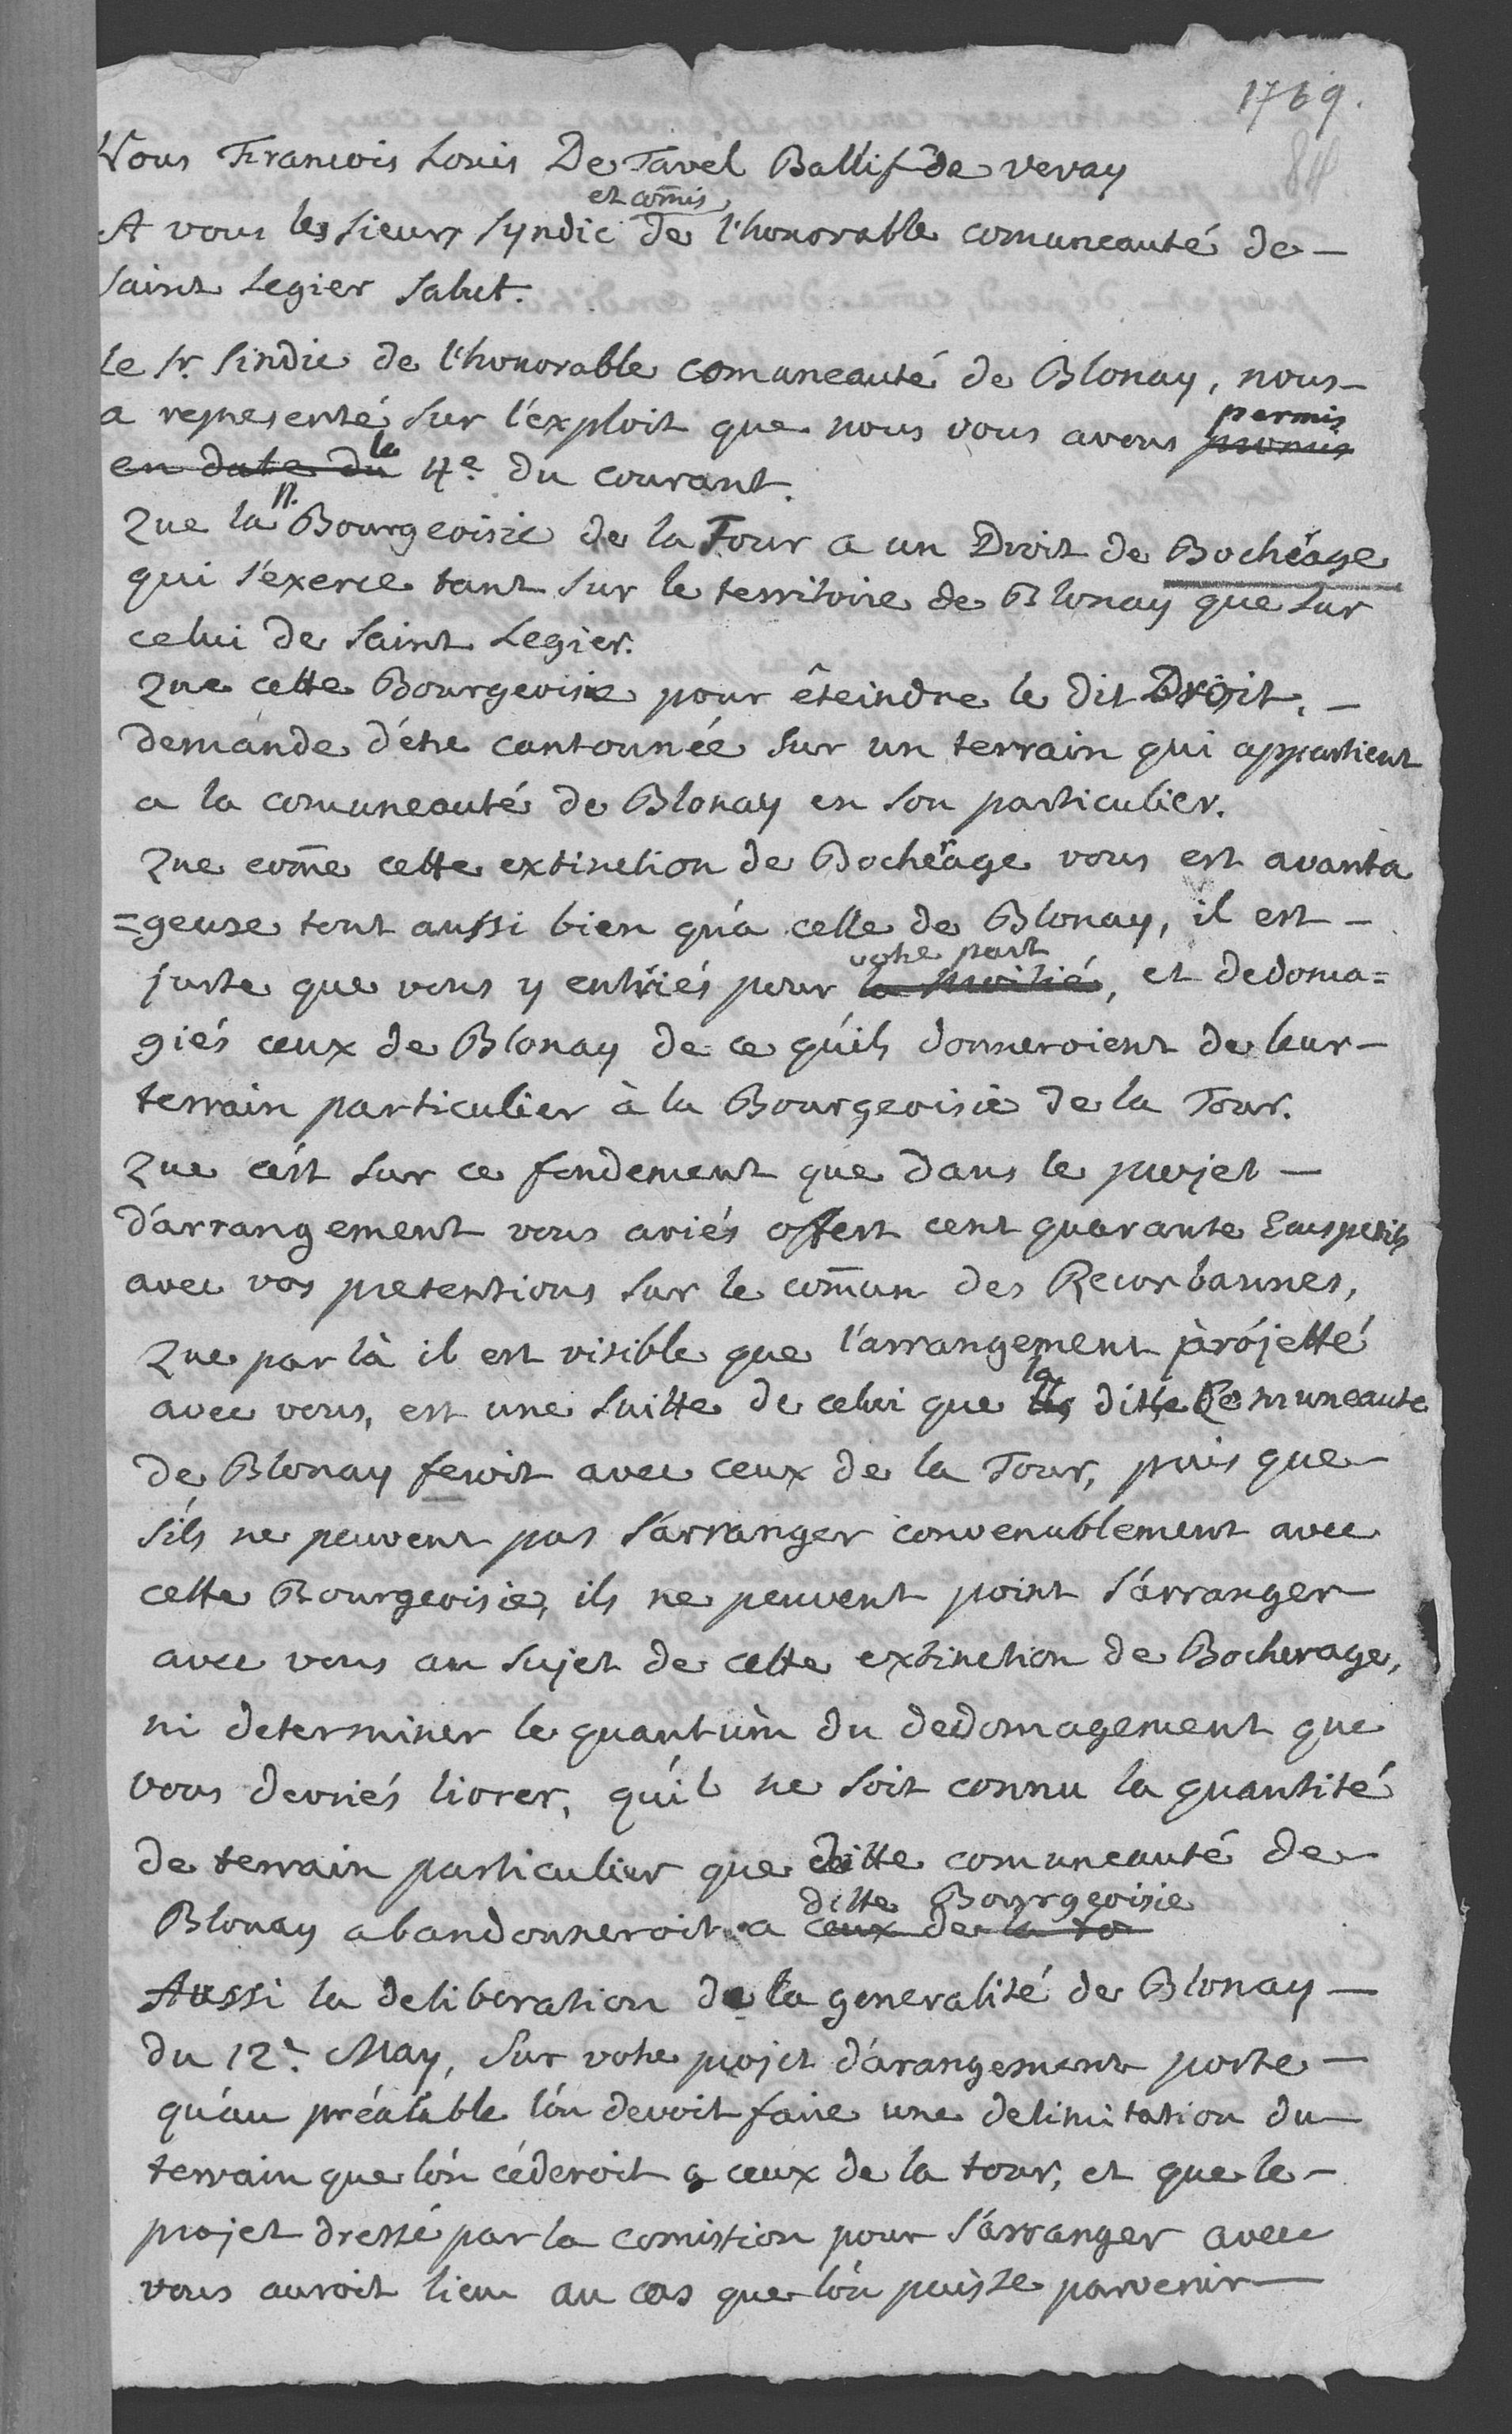 1769.
84
Nous Francois Louis De Tavel Ballif de vevay
et com̄is
A vous les sieurs Syndic de l'honorable comuneauté de –
Saint Legier Salut.
Le Sr. Sindic de l'honorable comuneauté de Blonay, nous –
a representé sur l'exploit que nous vous avons promis permis
en date du le 4e du courant.
Que la n. Bourgeoisie de la Tour a un Droit de Bochéage
qui s'exerce tant sur le territoire de Blonay que sur
celui de Saint Legier.
Que cette Bourgeoisie pour êteindre le dit Droit, –
demande d'étre cantonnée sur un terrain qui appartient
a la comuneauté de Blonay en son particulier.
Que com̄e cette extinction de Bochéage vous est avanta
=geuse tout aussi bien qu'a celle de Blonay, il est –
juste que vous y entriés pour la moitié votre part, et dedoma=
giés ceux de Blonay de ce qu'ils donneroient de leur –
terrain particulier à la Bourgeoisie de la Tour.
Que c'est sur ce fondement que dans le projet –
d'arrangement vous aviés offert cent quarante Ecus petits
avec vos pretentions sur le com̄un des Recorbannes,
Que par là il est visible que l'arrangement projetté
avec vous, est une suitte de celui que la ditte Comuneaute
de Blonay feroit avec ceux de la Tour, puis que –
s'ils ne peuvent pas s'arranger convenablement avec
cette Bourgeoisie, ils ne peuvent point s'arranger
avec vous au sujet de cette extinction de Bocherage,
ni determiner le quantum du dedomagement que
vous devriés livrer, qu'il ne soit connu la quantité
de terrain particulier que ditte comuneauté de
Blonay abandonneroit a ceux de la to ditte Bourgeoisie
Aussi la deliberation de la generalité de Blonay –
du 12e May, sur votre projet d'arangement porte –
qu'au préalable l'on devoit faire une delimitation du –
terrain que l'on céderoit a ceux de la tour, et que le –
projet dressé par la comission pour s'arranger avec
vous auroit lieu au cas que l'on puisse parvenir –